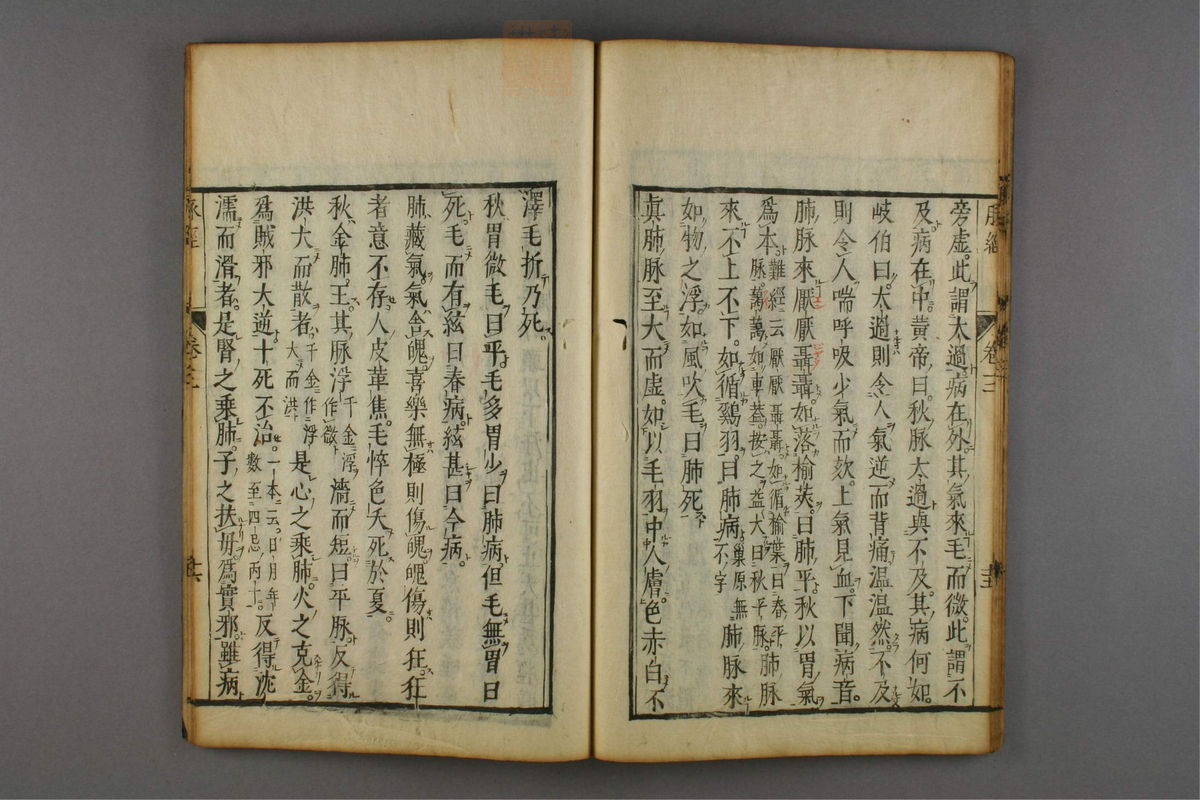 旁虛。此謂太過。病在外。其氣來毛而微。此謂不
及病在中。黃帝曰。秋脉太過與不及。其病何如。
岐伯曰。太過則令人氣逆而背痛温温然。不及
則令人喘呼吸少氣而欬。上氣見血。下聞病音。
肺脉來厭厭聶聶。如落榆莢。曰肺平。秋以胃氣
爲本。難經云厭厭聶聶如循榆葉曰春平脉。藹藹如車蓋。按之益大曰秋平脉。肺脉
來不上不下。如循鷄羽。曰肺病。巢原無不字肺脉來
如物之浮。如風吹毛。曰肺死。
眞肺脉至大而虛。如以毛羽中人膚。色赤白不
澤毛折乃死。
秋胃微毛曰平。毛多胃少曰肺病。但毛無胃曰
死。毛而有絃曰春病。絃甚曰今病。
肺藏氣。氣舍魄。喜樂無極則傷魄。魄傷則狂。狂
者意不存人。皮革焦。毛悴色夭。死於夏。
秋金肺王。其脉浮千金浮作微濇而短。曰平脉。反得
洪大而散者千金作浮大而洪是心之乘肺。火之克金。
爲賊邪大逆。十死不治。一本云。日月年數至四忌丙丁。反得沈
濡而滑者。是腎之乘肺。子之扶母。爲實邪。雖病
脉經
卷之三